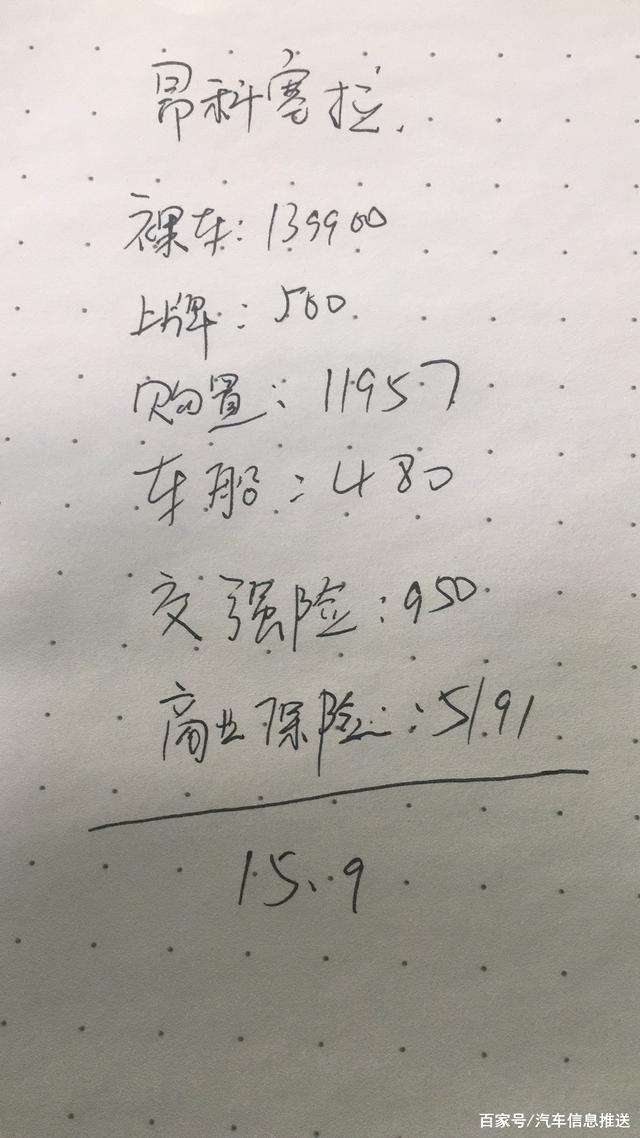 昂科塞拉
裸车:139900
上牌:500
购置:11957
车船:480
交强险:950
商业保险:5191
15.9
百家号/汽车信息推送